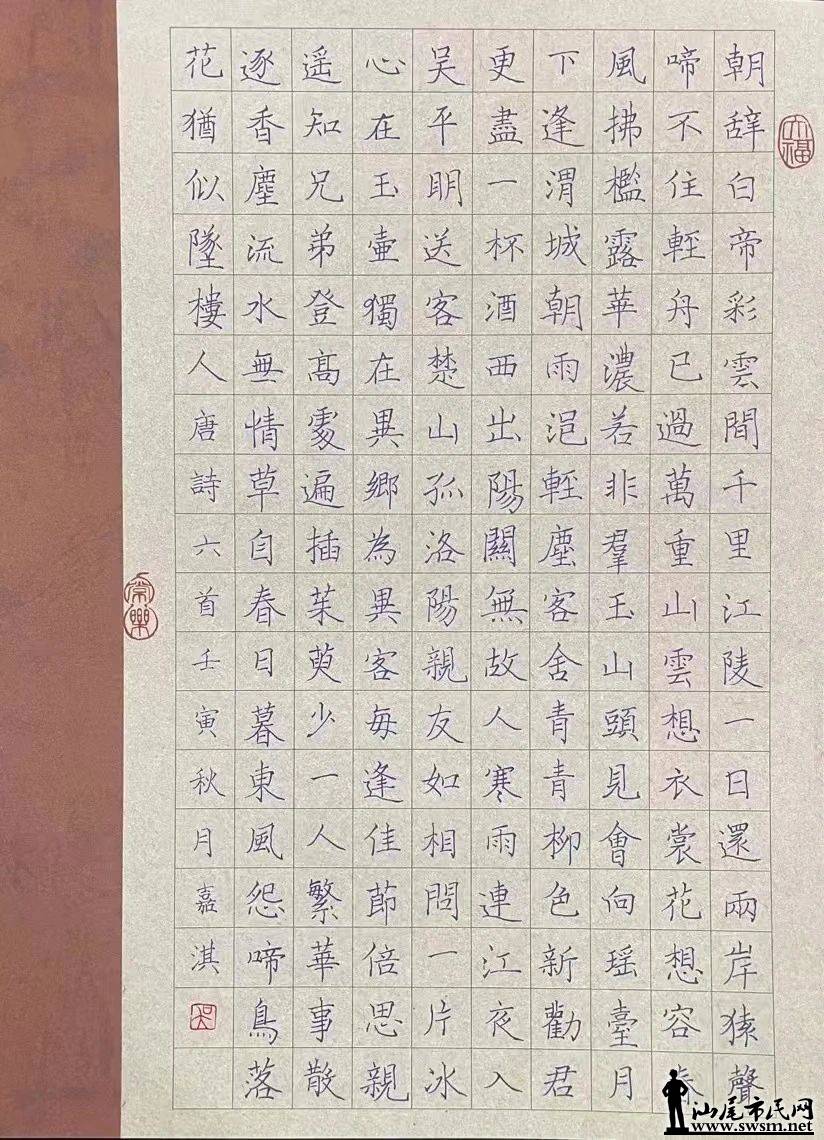 朝辞白帝彩雲間千里江陵一日還兩岸猿聲
啼不住輕舟已過萬重山雲想衣裳花想容春
風拂檻露華濃若非羣玉山頭見會向瑶臺月
下逢渭城朝雨浥輕塵客舍青青柳色新勸君
更盡一杯酒西出陽關無故人寒雨連江夜入
吴平明送客楚山孤洛陽親友如相問一片冰
心在玉壺獨在異鄉為異客每逢佳節倍思親
遥知兄弟登高處遍插茱萸少一人繁華事散
逐香塵流水無情草自春日暮東風怨啼鳥落
花猶似墜樓人唐詩六首壬寅秋月嘉淇
常樂
汕尾市民网
www.swsm.net